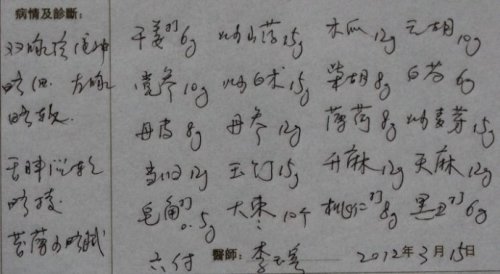 病情及診斷：
双脉
略细 左脉
略软
舌胖
略
苔薄白略腻
干姜打6g 炒山药15g 木瓜12g 元胡10g
党参10g 炒白术15g 柴胡8g 白芍6g
丹皮8g 丹参12g 薄荷8g 炒麦芽15g
当归12g 玉竹15g 升麻12g 天麻12g
皂角打0.5g 大枣10个 桃仁打8g 黑丑打6g
六付 醫師： 李 2012年3月15日